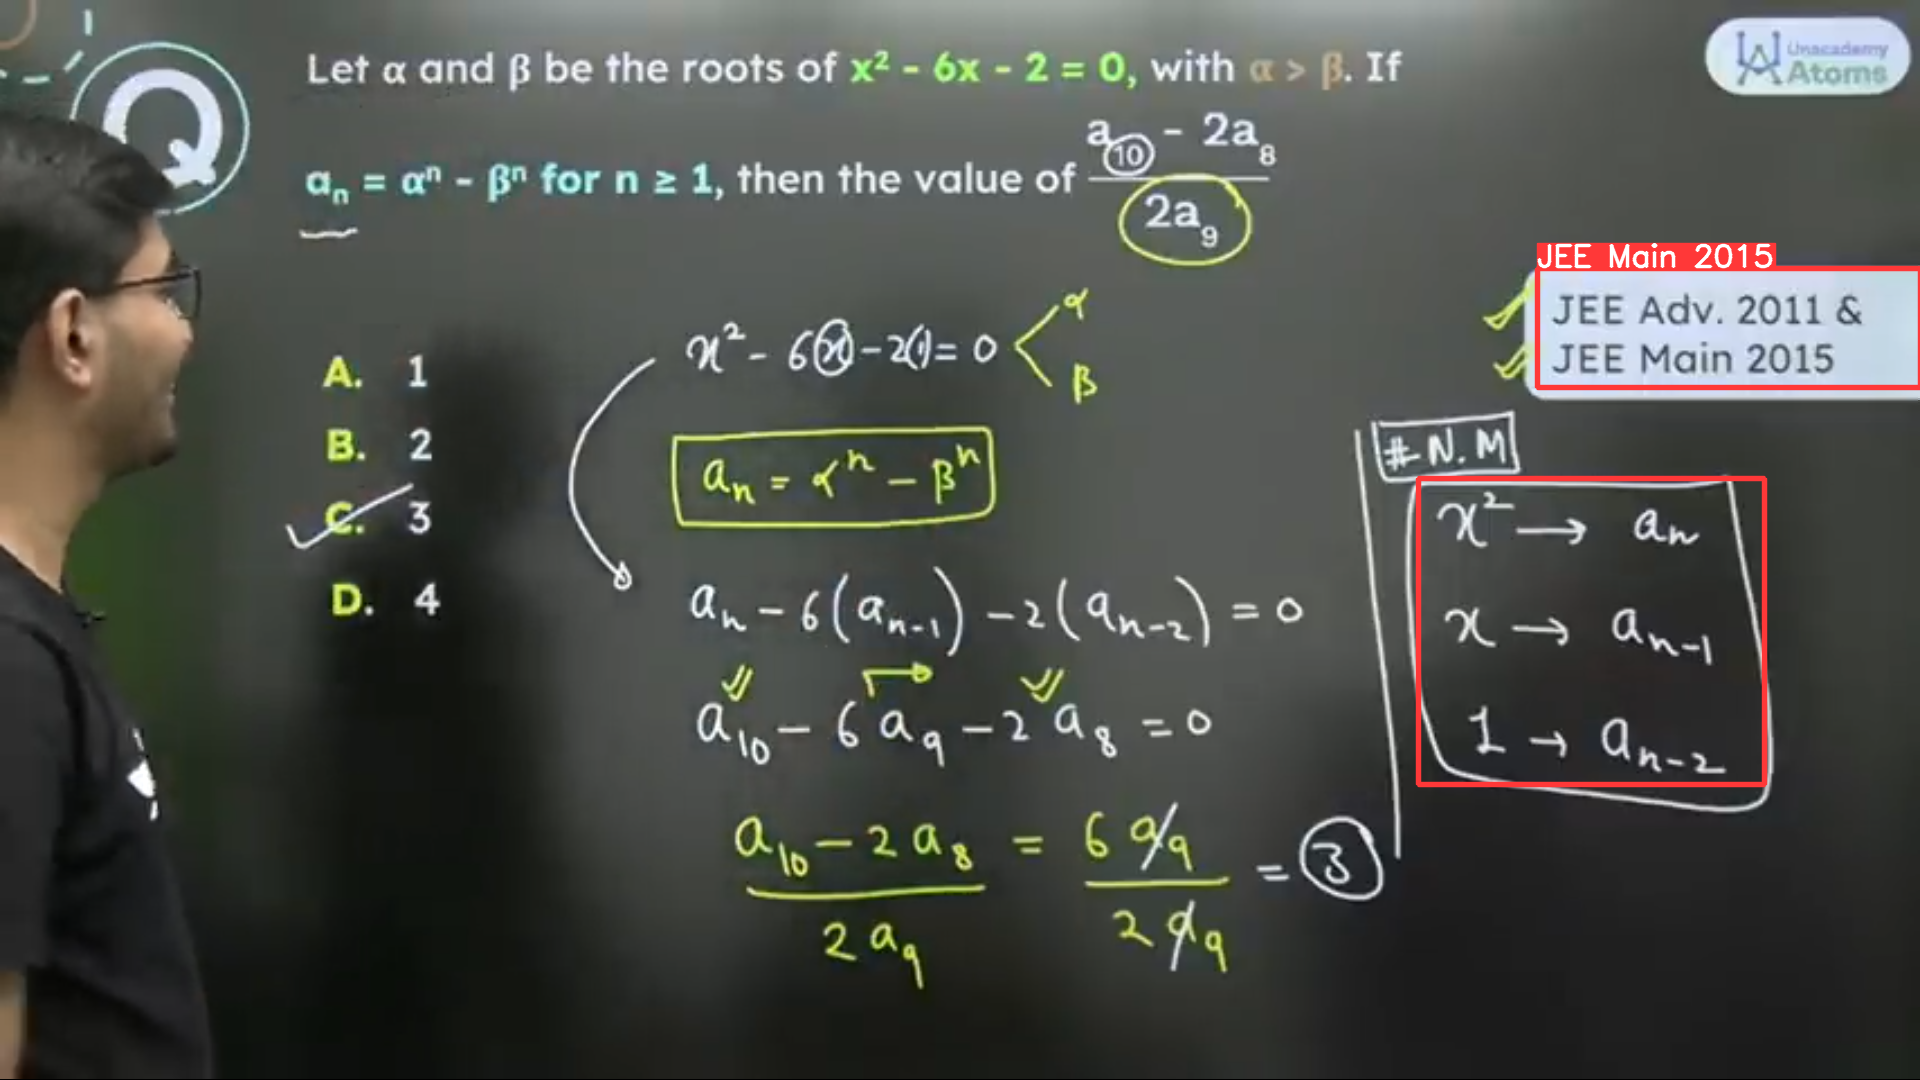 Let α and β be the roots of x² - 6x - 2 = 0, with α > β. If
aₙ = αⁿ - βⁿ for n ≥ 1, then the value of (a₁₀ - 2a₈) / 2a₉
Unacademy
Atoms
JEE Main 2015
JEE Adv. 2011 &
JEE Main 2015
A. 1
B. 2
C. 3
D. 4
x² - 6(x) - 2(1) = 0
α
β
aₙ = αⁿ - βⁿ
aₙ - 6(aₙ₋₁) - 2(aₙ₋₂) = 0
a₁₀ - 6a₉ - 2a₈ = 0
(a₁₀ - 2a₈) / 2a₉ = 6a₉ / 2a₉ = 3
# N.M
x² → aₙ
x → aₙ₋₁
1 → aₙ₋₂